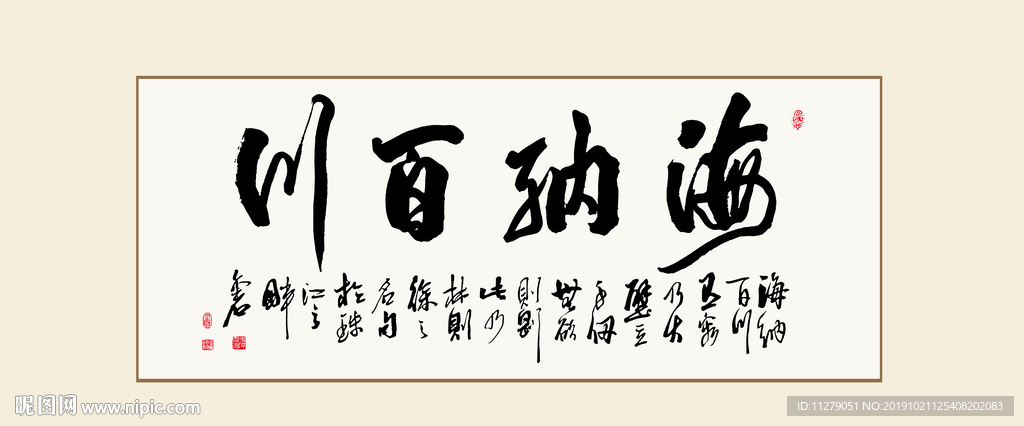 海納百川
海納
百川
有容
乃大
壁立
千仞
無欲
則剛
此乃
林則
徐之
名句
於珠
江之
畔
昵图网 www.nipic.com
ID:11279051 NO:20191021125408202083